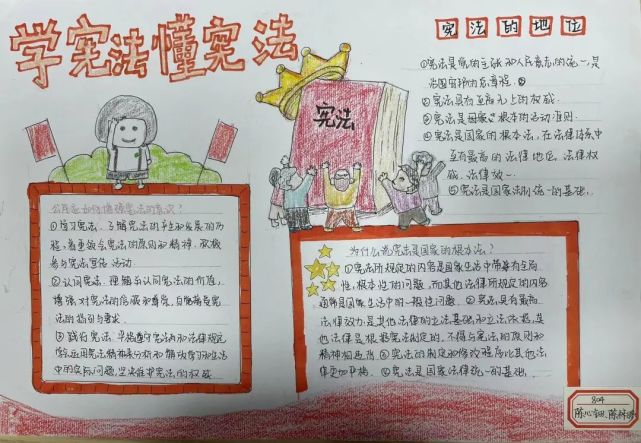 学宪法懂宪法
宪法的地位
①宪法是党的主张和人民意志的统一,是
治国安邦的总章程。②
②宪法具有至高无上的权威.
③宪法是国家根本的活动准则.
④宪法是国家的根本法,在法律体系中
至有最高的法律地位、法律权
威、法律效一.
⑤宪法是国家法制统一的基础.
宪法
公民应如何增强宪法的意识?
①学习宪法.了解宪法的产生和发展的历
程,着重领会宪法的原则和精神.积极
参与宪法宣传活动
②认同宪法.理解与认同宪法的价值,
增强对宪法的信服和尊崇,自觉接受宪
法的指引与要求
③践行宪法.严格遵守宪法和法律规定
宪法精神来分析和解决学习和生活
中的实际问题,坚决维护宪法的权威.
为什么说宪法是国家的根本法?
①宪法所规定的内容是国家生活中带有全局
性,根本性的问题,而其他法律所规定的内容
通常是国家生活中的一般性问题.②宪法具有最高
法律效力,是其他法律的立法基础和立法依据,其
他法律是根据宪法制定的,不得与宪法的原则和
精神相违背③宪法的制定和修改程序比其他法
律更加严格.④宪法是国家法律统一的基础.
804
陈心